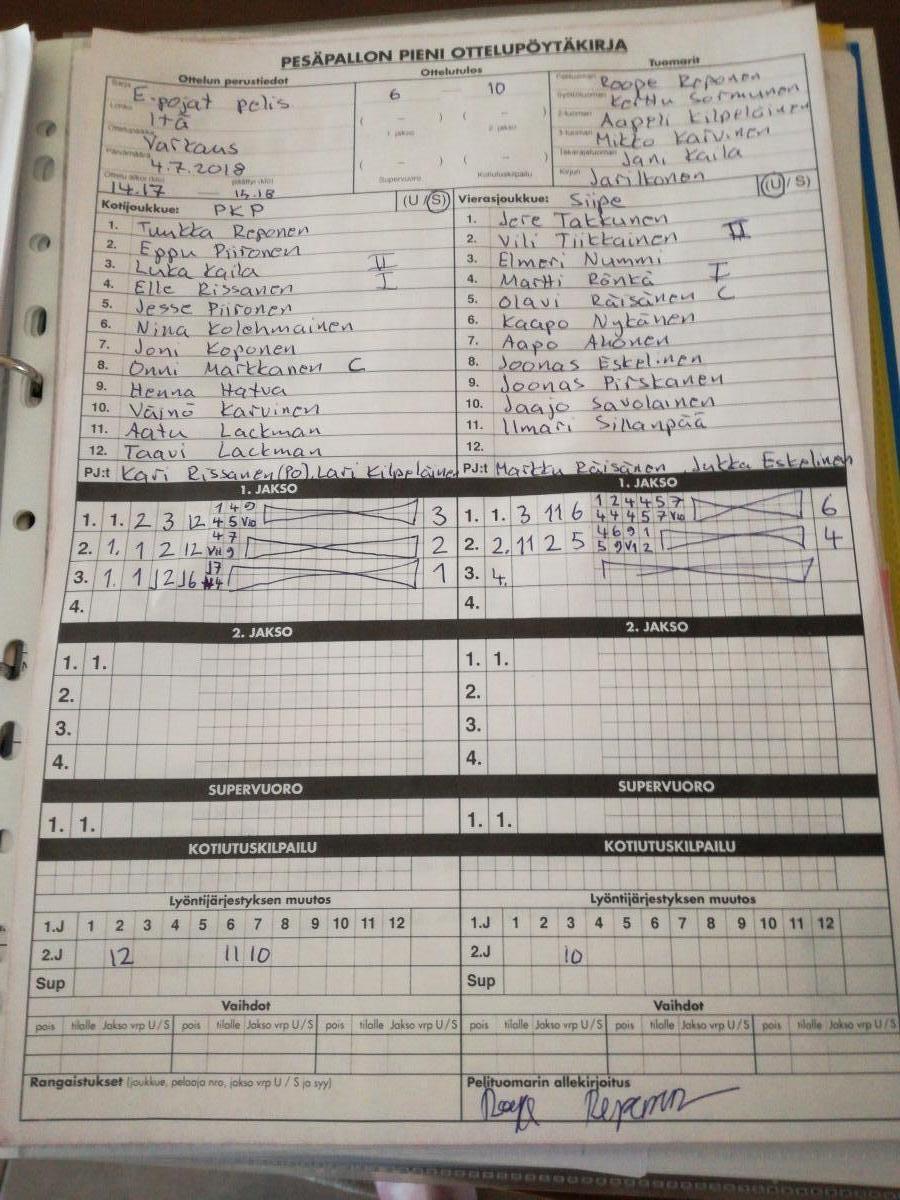 PESÄPALLON PIENI OTTELUPÖYTÄKIRJA
Ottelun perustiedot Ottelutulos Tuomarit
Sarja E-pojat pelis
Lohko Itä
Ottelupaikka Varkaus
Päivämäärä 4.7.2018
Ottelu alkoi (klo) 14.17 — päättyi (klo) 15.18
6 10
( – ) 1. jakso ( – ) 2. jakso
( – ) Supervuoro ( – ) Kotiutuskilpailu
Pelituomari Roope Reponen
Syöttötuomari Kerttu Sormunen
2-tuomari Aapeli Kilpeläinen
3-tuomari Mikko Karvinen
Takarajatuomari Jani Kaila
Kirjuri Jari Ikonen
Kotijoukkue: PKP (U/S)
1. Tuukka Reponen
2. Eppu Piironen
3. Luka Kaila II
4. Elle Rissanen I
5. Jesse Piironen
6. Nina Kolehmainen
7. Joni Koponen
8. Onni Markkanen C
9. Henna Hatva
10. Väinö Karvinen
11. Aatu Lackman
12. Taavi Lackman
PJ:t Kari Rissanen (PO), Lari Kilpeläinen
Vierasjoukkue: Siipe (U/S)
1. Jere Takkunen
2. Vili Tiikkainen II
3. Elmeri Nummi
4. Martti Rönkä I
5. Olavi Räisänen C
6. Kaapo Nykänen
7. Aapo Ahonen
8. Joonas Eskelinen
9. Joonas Pirskanen
10. Jaajo Savolainen
11. Ilmari Sillanpää
12.
PJ:t Markku Räisänen, Jukka Eskelinen
1. JAKSO
1. 1. 2 3 12 3
2. 1. 1 2 12 2
3. 1. 1 1
4.
2. JAKSO
1. 1.
2.
3.
4.
SUPERVUORO
1. 1.
KOTIUTUSKILPAILU
Lyöntijärjestyksen muutos
1.J 1 2 3 4 5 6 7 8 9 10 11 12
2.J 12 11 10
Sup
Vaihdot
pois tilalle Jakso vrp U/S pois tilalle Jakso vrp U/S pois tilalle Jakso vrp U/S
Rangaistukset (joukkue, pelaaja nro, jakso vrp U / S ja syy)
1. JAKSO
1. 1. 3 11 6 1 2 4 4 5 7 6
4 4 4 5 7
2. 2. 11 2 5 4 6 9 1 4
3. 4.
4.
2. JAKSO
1. 1.
2.
3.
4.
SUPERVUORO
1. 1.
KOTIUTUSKILPAILU
Lyöntijärjestyksen muutos
1.J 1 2 3 4 5 6 7 8 9 10 11 12
2.J 10
Sup
Vaihdot
pois tilalle Jakso vrp U/S pois tilalle Jakso vrp U/S pois tilalle Jakso vrp U/S
Pelituomarin allekirjoitus
Roope Reponen